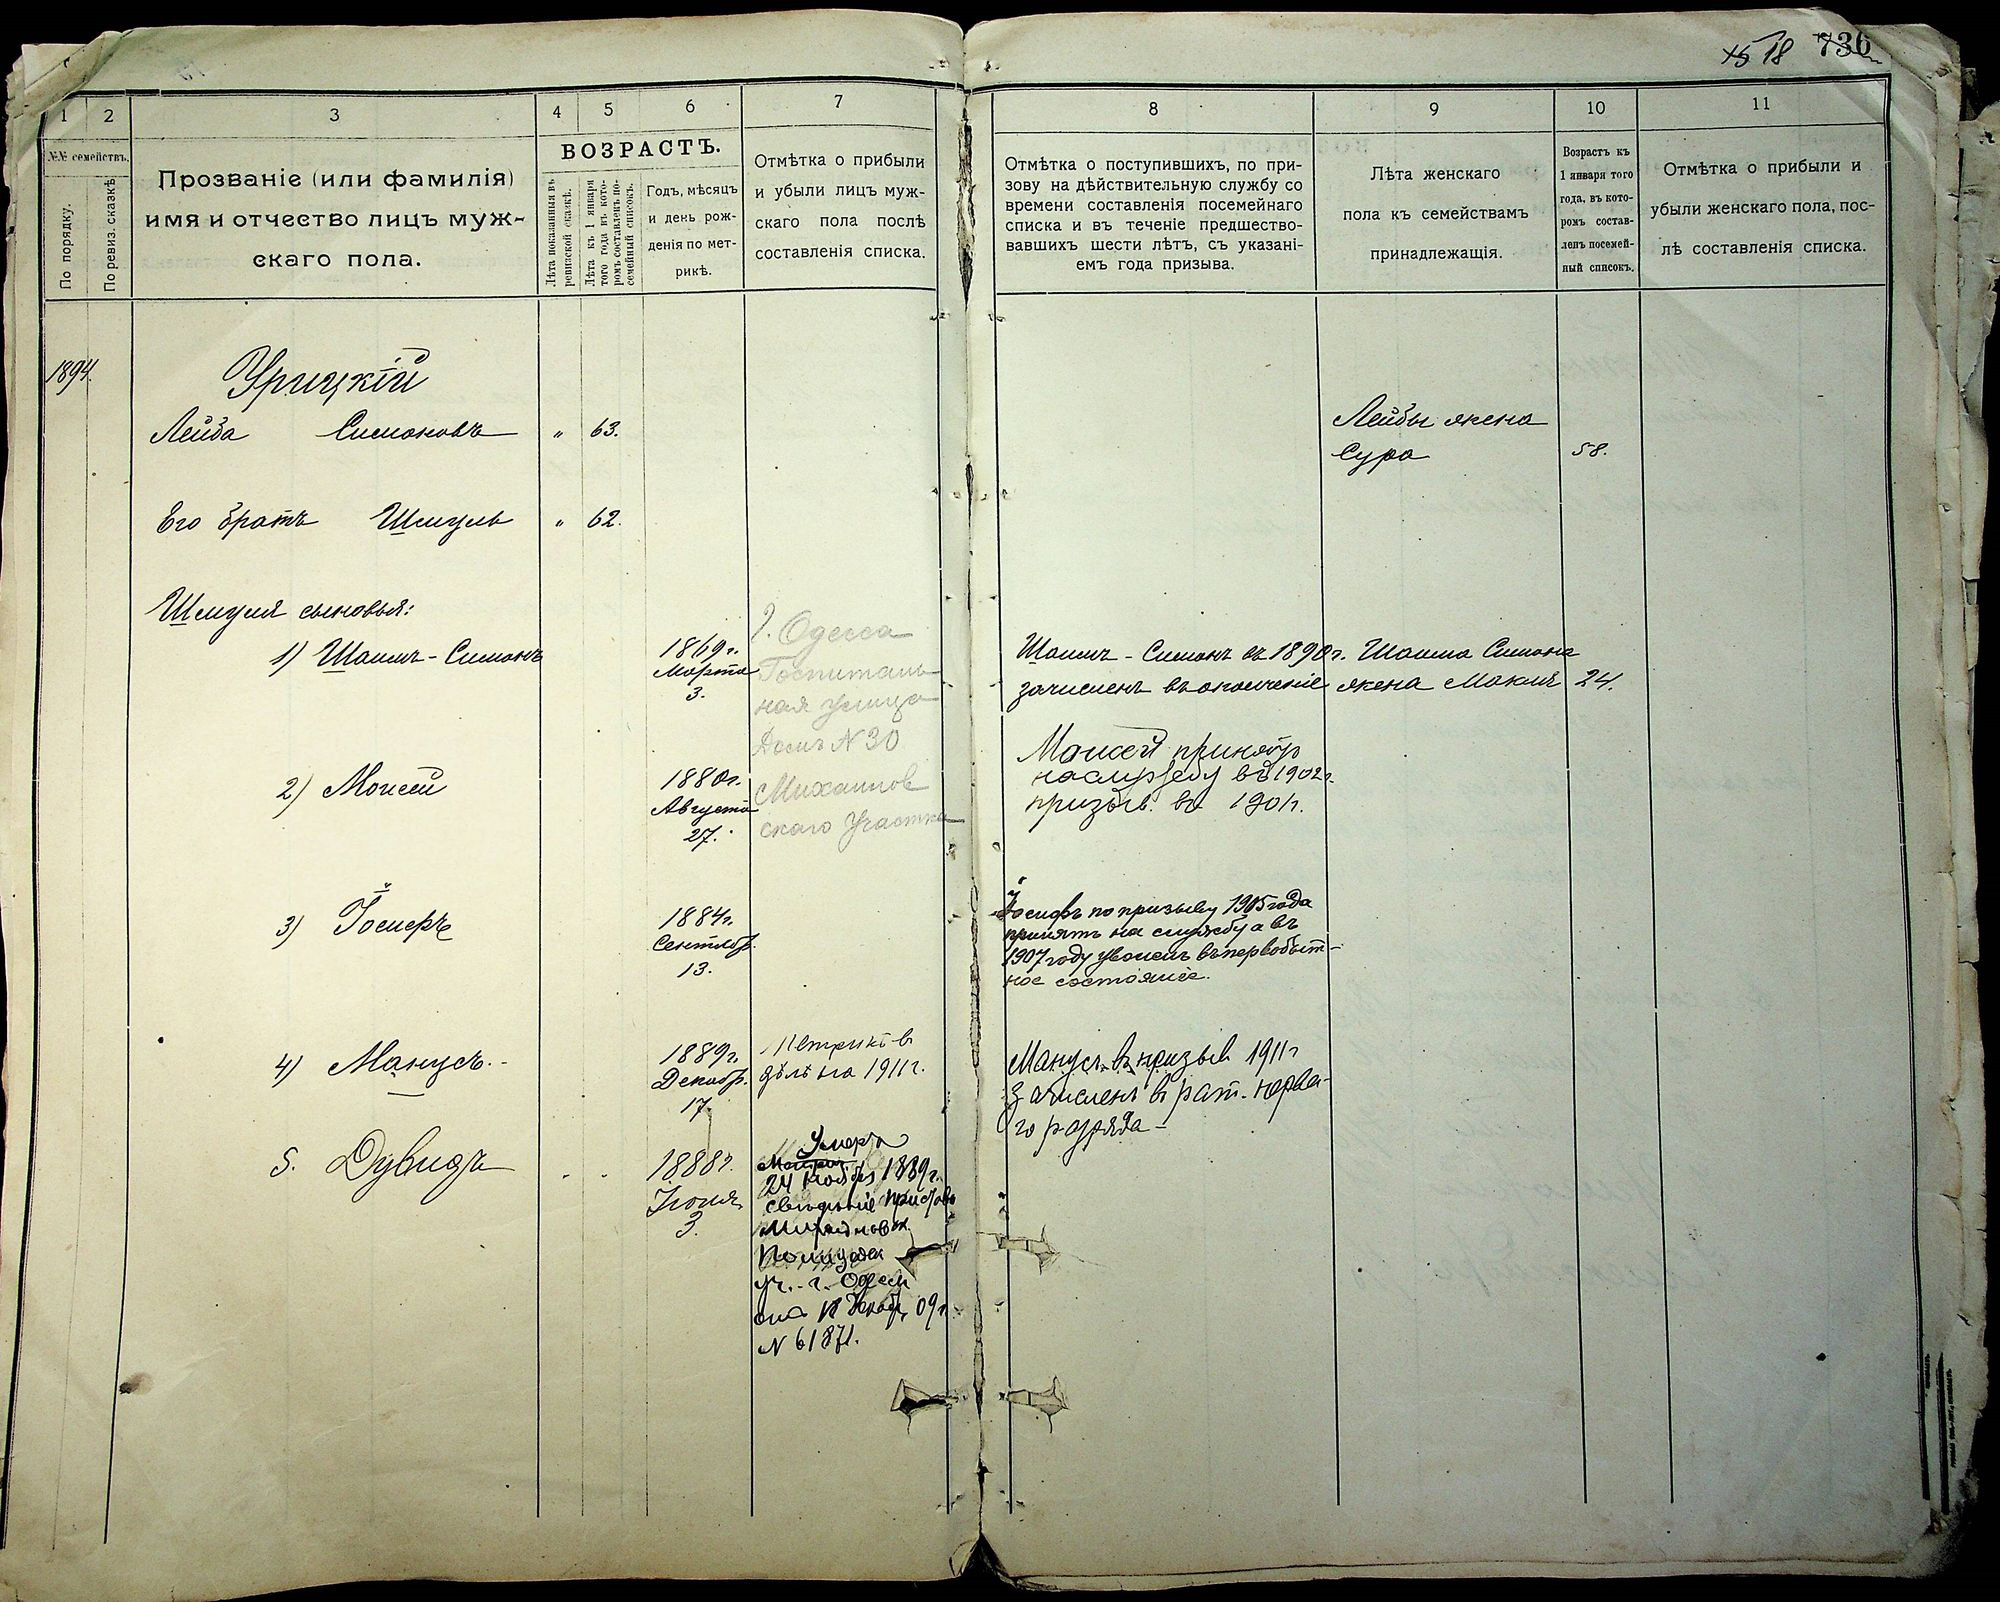 18 736
1 2 3 4 5 6 7
№№ семействъ.
По порядку.
По ревиз. сказкѣ
Прозваніе (или фамилія)
имя и отчество лицъ муж-
скаго пола.
ВОЗРАСТЪ.
Лѣта показанныя въ
ревизской сказкѣ.
Лѣта къ 1 января
того года въ кото-
ромъ составленъ по-
семейный списокъ.
Годъ, мѣсяцъ
и день рож-
денія по мет-
рикѣ.
Отмѣтка о прибыли
и убыли лицъ муж-
скаго пола послѣ
составленія списка.
8 9 10 11
Отмѣтка о поступившихъ, по при-
зову на дѣйствительную службу со
времени составленія посемейнаго
списка и въ теченіе предшество-
вавшихъ шести лѣтъ, съ указані-
емъ года призыва.
Лѣта женскаго
пола къ семействамъ
принадлежащія.
Возрастъ къ
1 января того
года, въ кото-
ромъ состав-
ленъ посемей-
ный списокъ.
Отмѣтка о прибыли и
убыли женскаго пола, пос-
лѣ составленія списка.
1894.
Урицкій
Лейба Симоновъ " 63.
Лейбы жена
Сура 58.
Его братъ Шмуль " 62.
Шмуля сыновья:
1) Шаимъ-Симонъ
1869г.
Марта
3.
г. Одесса
Госпиталь
ная улица
Домъ N 30
Михайлов
скаго участка
Шаимъ-Симонъ въ 1890г.
зачисленъ въ ополченіе
Шаима Симона
жена Макля 24.
2) Моисей
1880г.
Августа
27.
Моисей принятъ
на службу въ 1902г.
призыв. въ 1901г.
3) Іосифъ
1884г.
Сентябр.
13.
Іосифъ по призыву 1905 года
принятъ на службу а въ
1907 году уволенъ въ первобыт-
ное состояніе.
4) Манусъ.
1889г.
Декабр.
17.
Метрика в
дѣлѣ на 1911г.
Манусъ въ призыв 1911г
зачисленъ в рат. перва-
го разряда
5. Дувидъ
1888г.
Іюня
3.
Умеръ
24 Ноября 1889г.
свѣдѣніе Пристава
Михайловск.
Полицейск
уч. г. Одессы
отъ Декабр. 09г.
N 61871.